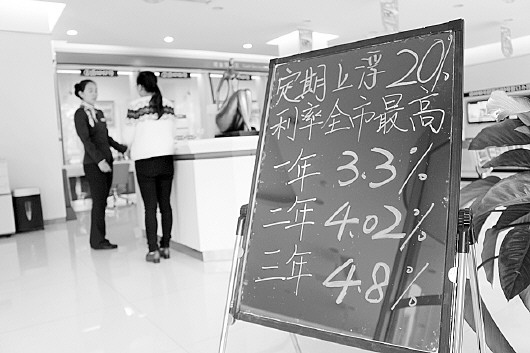 定期上浮20%
利率全市最高
一年 3.3%
二年 4.02%
三年 4.8%